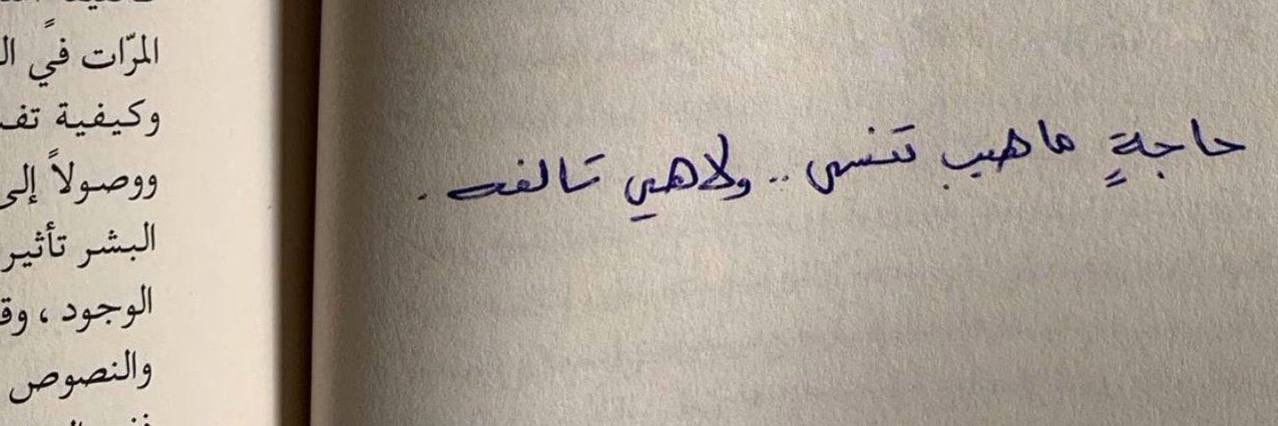 المرّات في ال
وكيفية تف
ووصولاً إلى
البشر تأثير
الوجود ، وق
والنصوص
حاجةٍ ماهيب تنسى .. ولاهي تالفه .